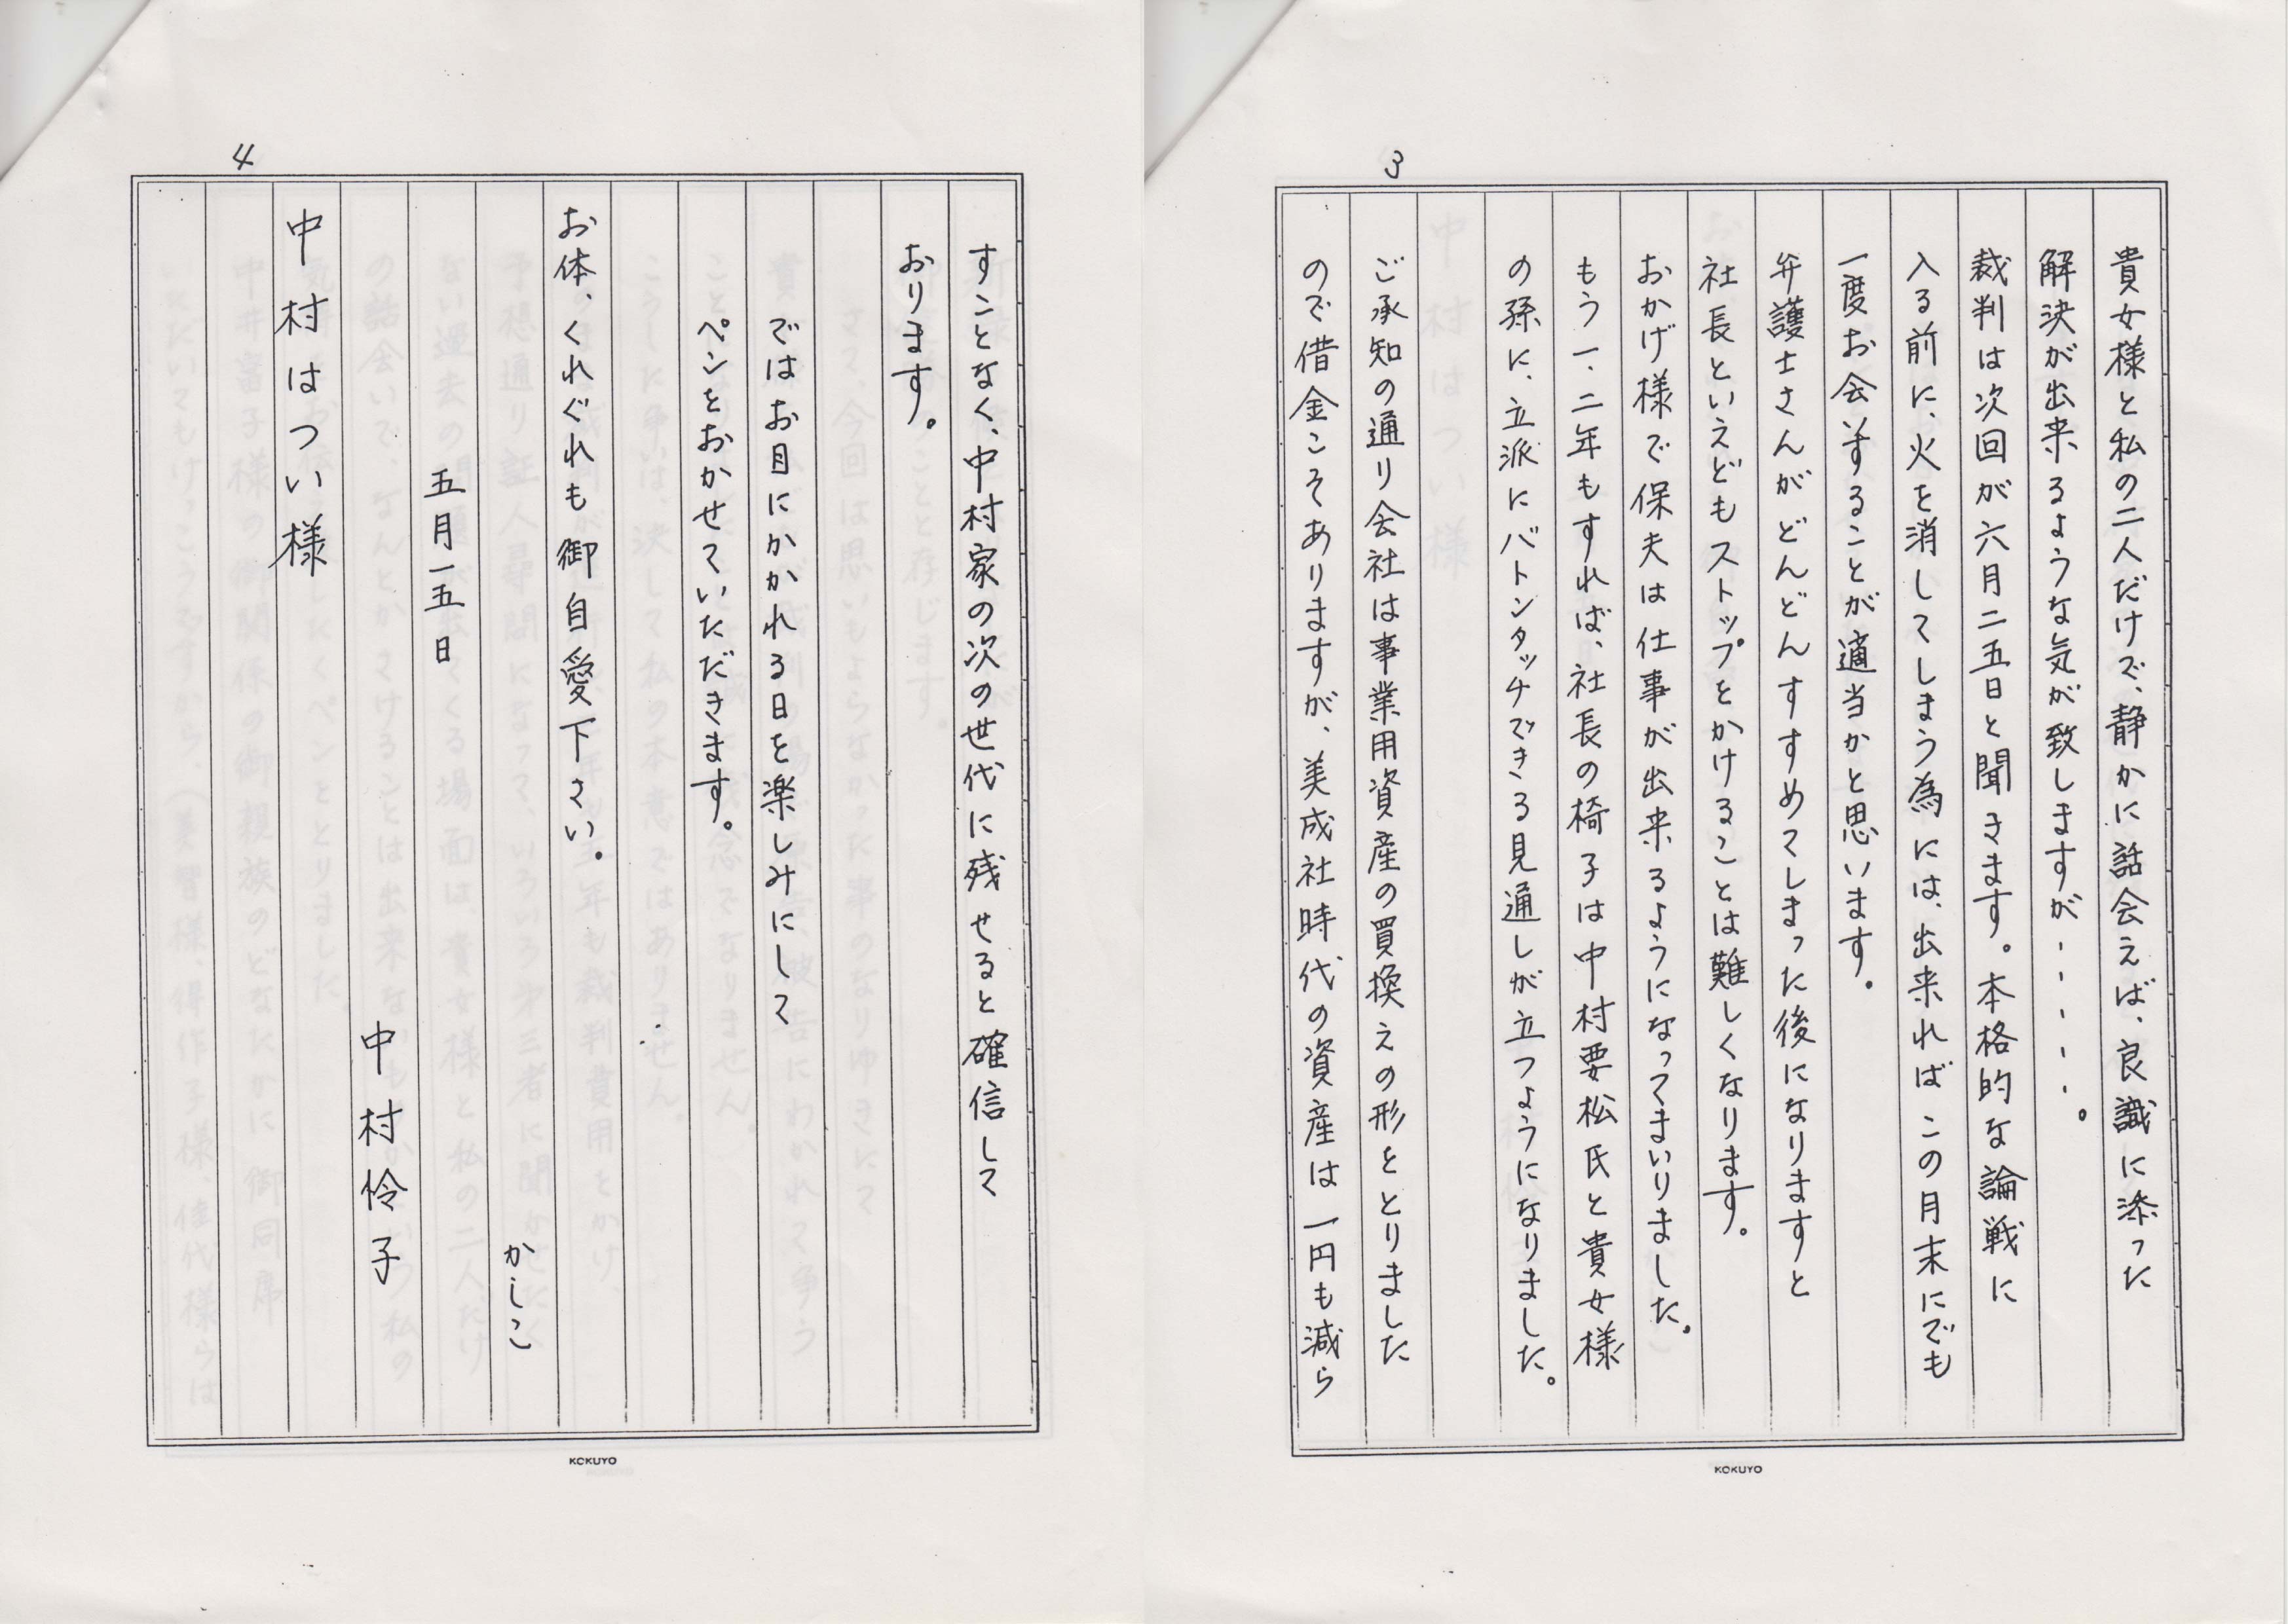 3
貴女様と私の二人だけで、静かに話会えば、良識に添った
解決が出来るような気が致しますが・・・・・。
裁判は次回が六月二五日と聞きます。本格的な論戦に
入る前に、火を消してしまう為には、出来ればこの月末にでも
一度お会いすることが適当かと思います。
弁護士さんがどんどんすすめてしまった後になりますと
社長といえどもストップをかけることは難しくなります。
おかげ様で保夫は仕事が出来るようになってまいりました。
もう一、二年もすれば、社長の椅子は中村要松氏と貴女様
の孫に、立派にバトンタッチできる見通しが立つようになりました。
ご承知の通り会社は事業用資産の買換えの形をとりました
ので借金こそありますが、美成社時代の資産は一円も減ら
KOKUYO
4
すことなく、中村家の次の世代に残せると確信して
おります。
ではお目にかかれる日を楽しみにして
ペンをおかせていただきます。
お体、くれぐれも御自愛下さい。
かしこ
五月一五日
中村伶子
中村はつい様
KOKUYO